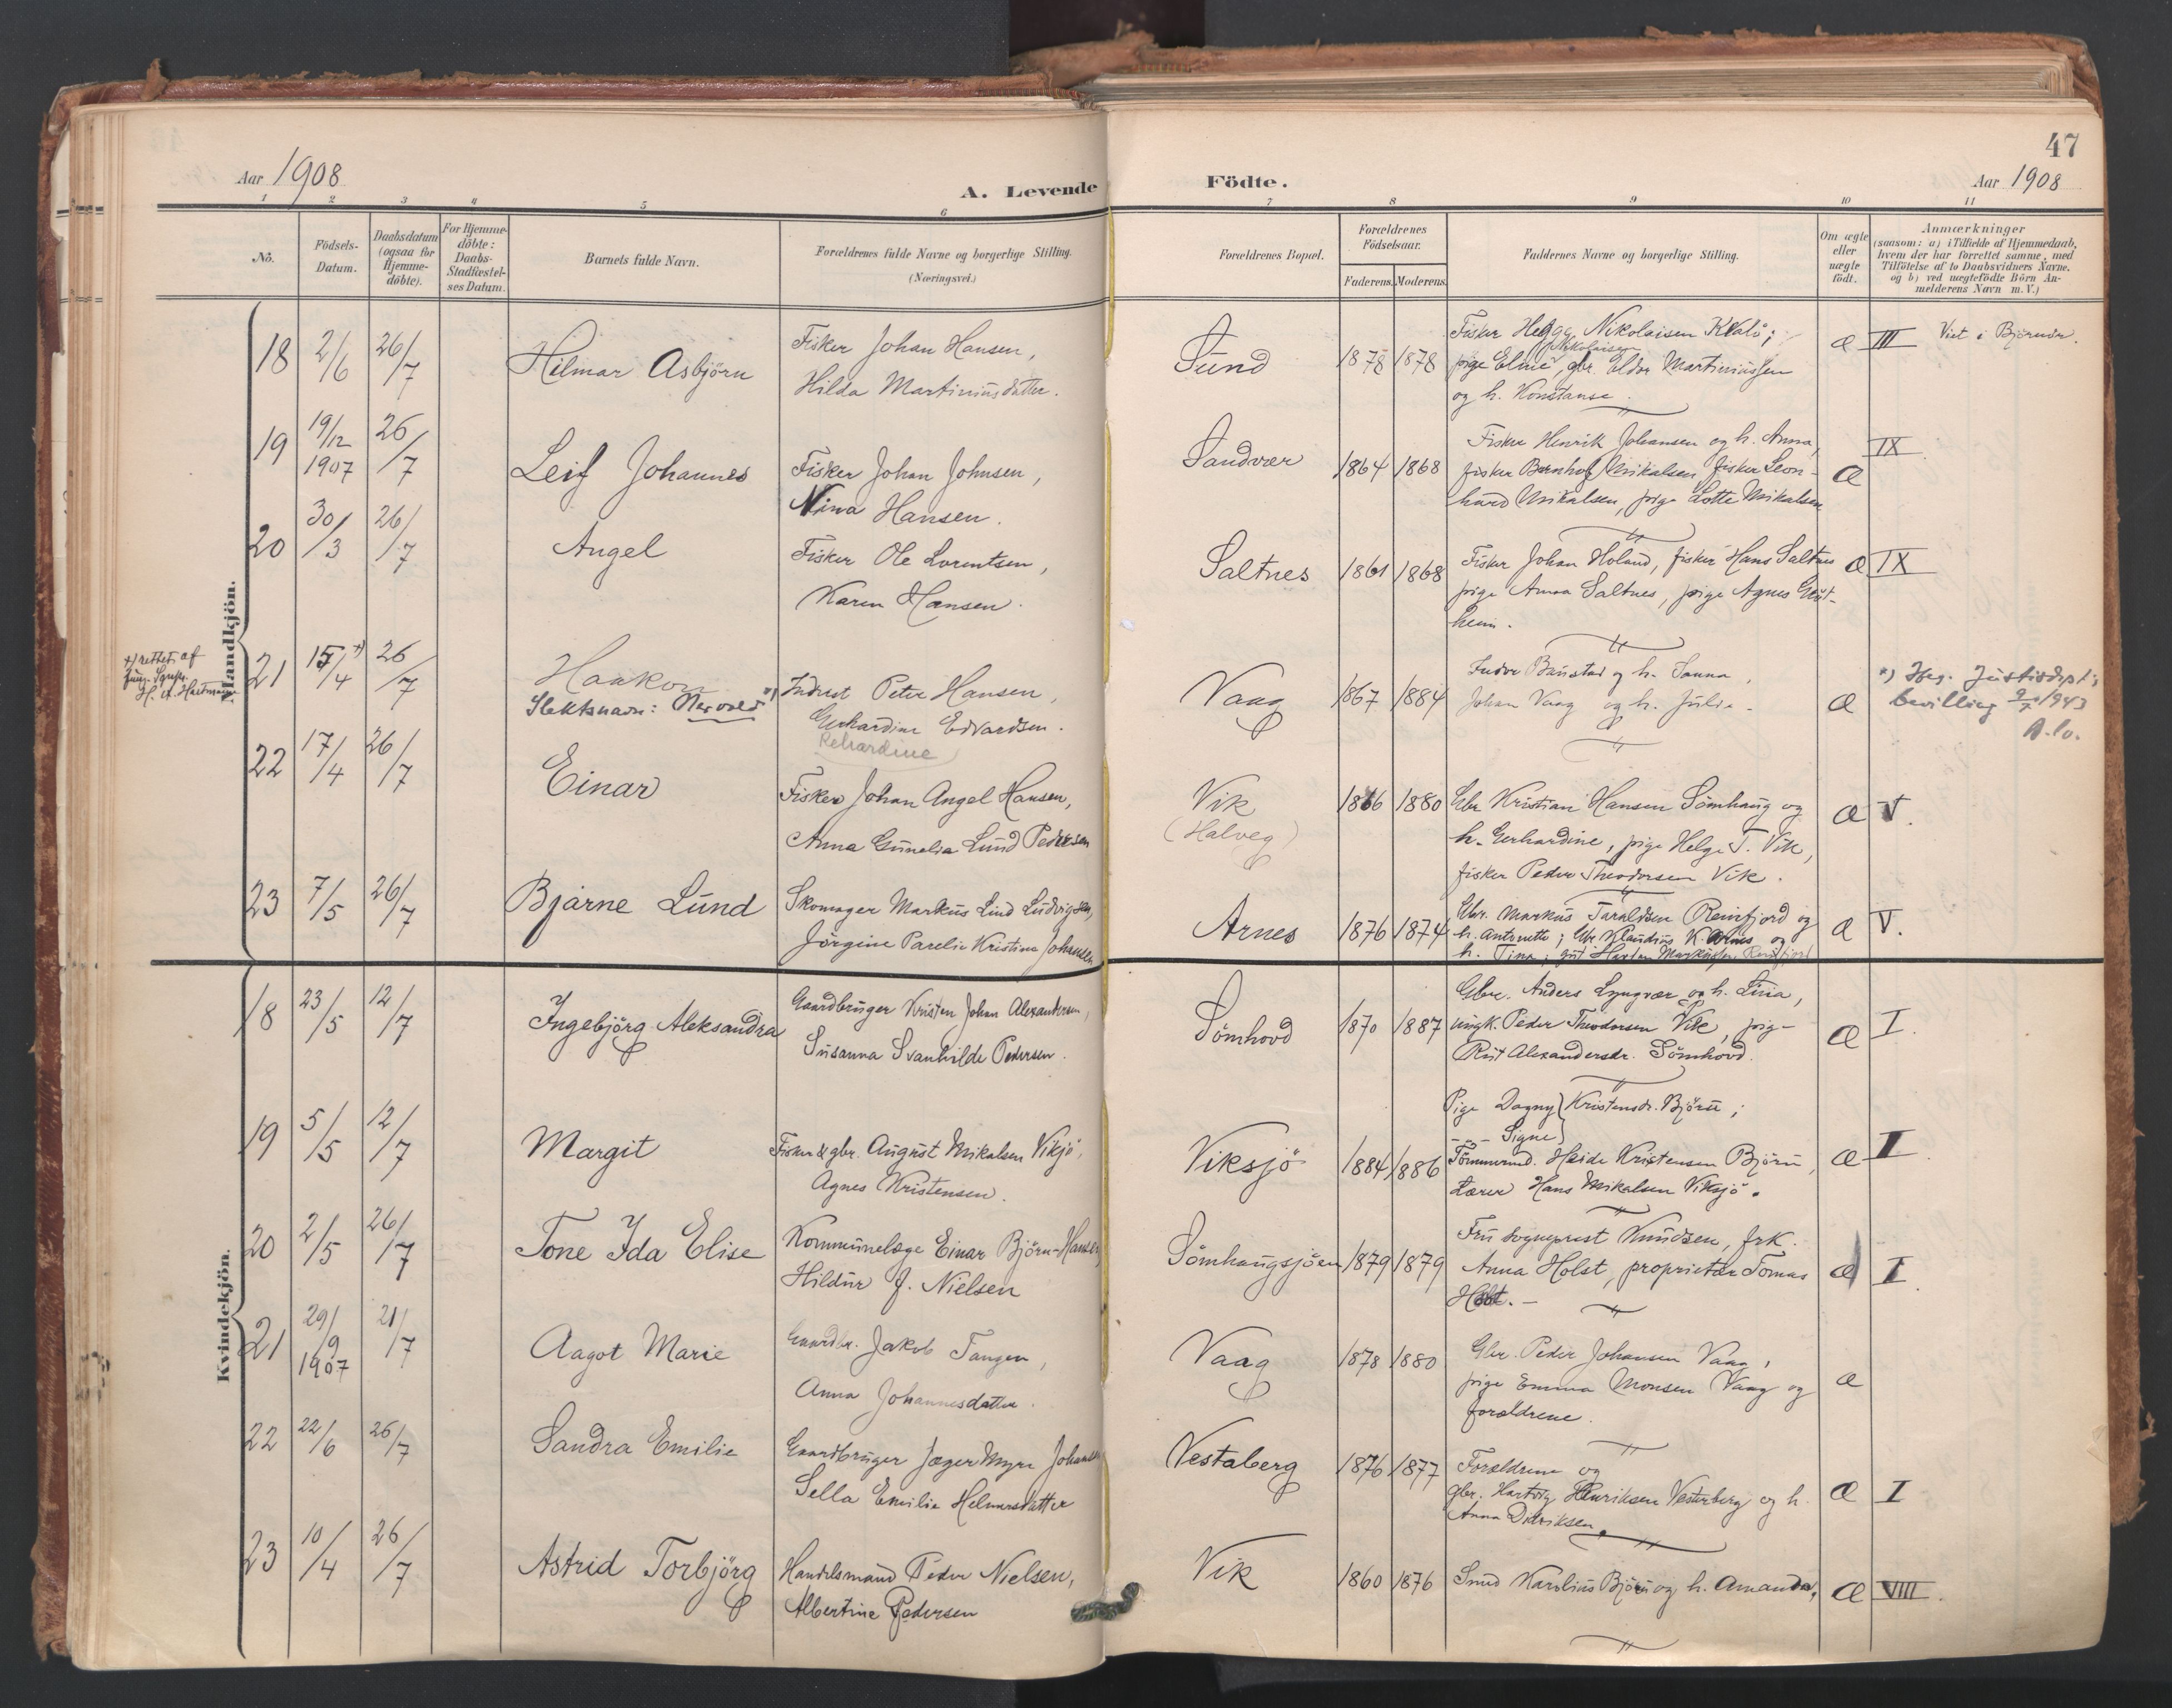 47
Aar 1908
A. Levende
Födte.
Aar 1908
1 2 3 4 5 6 7 8 9 10 11
No.
Födsels-
Datum.
Daabsdatum
(ogsaa for
Hjemme-
döbte).
For Hjemme-
döbte:
Daabs-
Stadfæstel-
ses Datum.
Barnets fulde Navn.
Forældrenes fulde Navne og borgerlige Stilling.
(Næringsvei.)
Forældrenes Bopæl.
Forældrenes
Födselsaar.
Faderens. Moderens.
Faddernes Navne og borgerlige Stilling.
Om ægte
eller
uægte
födt.
Anmærkninger
(saasom: a) i Tilfælde af Hjemmedaab,
hvem der har forrettet samme, med
Tilföielse af to Daabsvidners Navne,
og b) ved uægtefödte Börn An-
melderens Navn m. V.)
Mandkjön.
18 2/6 26/7
Hilmar Asbjörn
Fisker Johan Hansen,
Hilda Martinusdatter.
Sund
1878 1878
Fisker Helgg. Nikolaisen Kvalö;
Nikolaisen
pige Eline, gbr. Eldor Martinussen
og h. Konstanse.
Æ III
Viet i Björnör.
19 19/12 1907 26/7
Leif Johannes
Fisker Johan Johnsen,
Nina Hansen.
Sandvær
1864 1868
Fisker Henrik Johansen og h. Anna,
fisker Bernhof Mikalsen, fisker Leon-
hard Mikalsen, pige Lotte Mikalsen
Æ IX
20 30/3 26/7
Angel
Fisker Ole Lorentsen,
Karen Hansen.
Saltnes
1861 1868
Fisker Johan Holand, fisker Hans Saltnes
pige Anna Saltnes, pige Agnes
heim.
Æ IX
+) rettet af
H. A. Hartmann
21 15/4 +) 26/7
Haakon
Slektsnavn: Nervold *)
Indrest Peter Hansen,
Gerhardine Edvardsen.
Rehardine
Vaag
1867 1884
Indor Baustad og h. Sanna,
Johan Vaag og h. Julie.
Æ
*) Jfg. Justisdept.s
bevilling 9/7 1943
A. Lo.
22 17/4 26/7
Einar
Fisker Johan Angel Hansen,
Anna Gunelia Lund Pedersen
Vik
(Halveg)
1866 1880
Gbr Kristian Hansen Sömhaug og
h. Gerhardine, pige Helga T. Vik,
fisker Peder Theodorsen Vik.
Æ V.
23 7/5 26/7
Bjarne Lund
Skomager Markus Lind Ludvigsen,
Jörgine Parelie Kristine Johansen
Arnes
1876 1874
Gbr. Markus Taraldsen Reinfjord og
h. Antonette; Gbr Klaudius K. Arnes og
h. Tina; gut Harten Markussen Reinfjord
Æ V.
Kvindekjön.
18 23/5 12/7
Ingebjörg Aleksandra
Gaardbruger Kristen Johan Alexandersen,
Susanna Svanhilde Pedersen.
Sömhovd
1870 1887
Gbr. Anders Lyngvær og h. Lina,
ungk. Peder Theodorsen Vik, pige
Rut Alexandersdr. Sömhovd.
Æ I.
19 5/5 12/7
Margit
Fisker & gbr. August Mikalsen Viksjö,
Agnes Kristensen.
Viksjö
1884 1886
Pige Dagny } Kristensdr. Björn;
- - - Signe }
Tömmermd. Heide Kristensen Björn,
Lærer Hans Mikalsen Viksjö.
Æ I
20 2/5 26/7
Tone Ida Elise
Kommunelæge Einar Björn-Hansen,
Hildur J. Nielsen
Sömhaugsjöen
1879 1879
Fru sogneprest Knudsen, frk.
Anna Holst, proprietær Tomas
Holst. -
Æ I
21 29/9 1907 21/7
Aagot Marie
Gaardbr. Jakob Tangen,
Anna Johannesdatter.
Vaag
1878 1880
Gbr. Peder Johansen Vaag,
pige Emma Monsen Vaag og
forældrene.
Æ
22 22/6 26/7
Sandra Emilie
Gaardbruger Jæger Myre Johansen
Sella Emilie Helmersdatter
Vestaberg
1876 1877
Forældrene og
gbr. Hartvig Henriksen Vesterberg og h.
Anna Didriksen.
Æ I
23 10/4 26/7
Astrid Torbjörg
Handelsmand Peder Nielsen,
Albertine Pedersen
Vik
1860 1876
Smed Karolius Björn og h. Amanda.
Æ VIII.